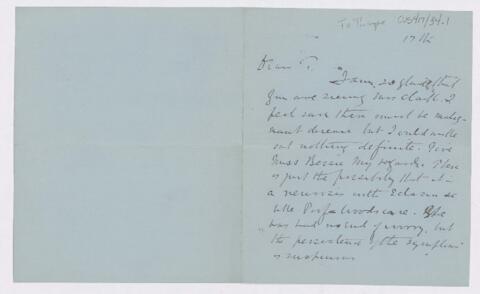 To Thayer CUS417/54.1
17th
Dear T.
I am so glad that
you are seeing Miss Clark. I
feel sure there must be malig-
nant disease but I could make
out nothing definite. Give
Miss Bessie my regards. There
is just the possibility that it is
a neurosis with
like case. She
has had no end of worry, but
the persistence of the symptoms
is suspicious